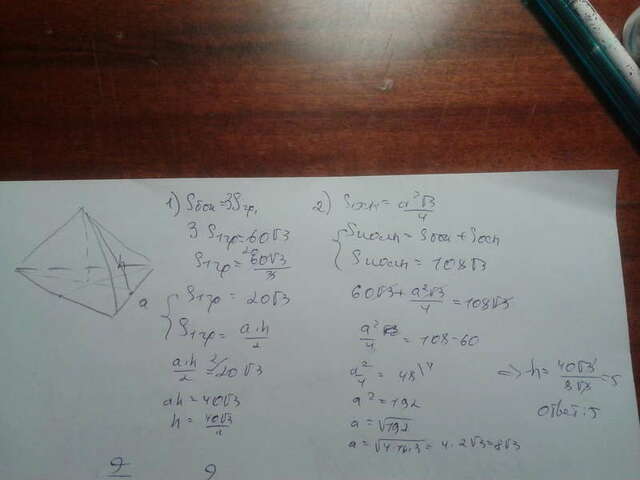 1) Sбок = 3S1гр.
3 S1гр = 60√3
S1гр = 60√3/3
{ S1гр = 20√3
S1гр = a·h/2
a·h/2 = 20√3
ah = 40√3
h = 40√3/a
2) Sосн = a²√3/4
{ Sполн = Sбок + Sосн
Sполн = 108√3
60√3 + a²√3/4 = 108√3
a²/4 = 108-60
a²/4 = 48
a² = 192
a = √192
a = √4·16·3 = 4·2√3 = 8√3
=> h = 40√3/8√3 = 5
Ответ: 5
a
h